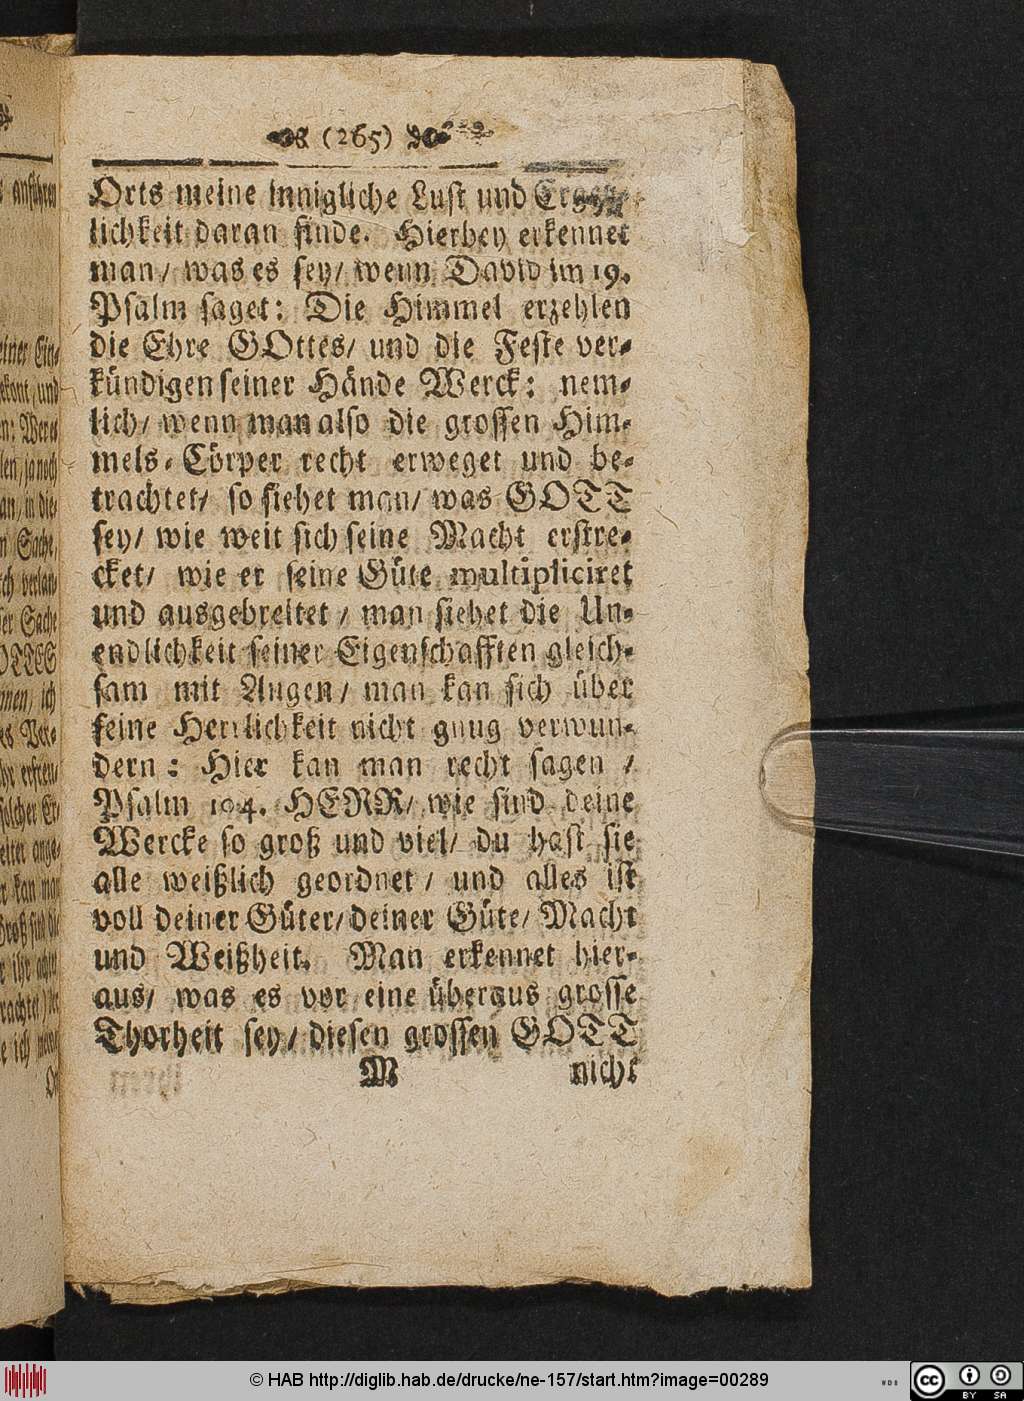 (265)
Orts meine innigliche Lust und
lichkeit daran finde. Hierbey erkennet
man/ was es sey/ wenn David im 19.
Psalm saget: Die Himmel erzehlen
die Ehre GOttes/ und die Feste ver-
kündigen seiner Hände Werck: nem-
lich/ wenn man also die grossen Him-
mels-Cörper recht erweget und be-
trachtet/ so siehet man/ was GOTT
sey/ wie weit sich seine Macht erstre-
cket/ wie er seine Güte multipliciret
und ausgebreitet/ man siehet die Un-
endlichkeit seiner Eigenschafften gleich-
sam mit Augen/ man kan sich über
seine Herrlichkeit nicht gnug verwun-
dern: Hier kan man recht sagen /
Psalm 104. HERR/ wie sind deine
Wercke so groß und viel/ du hast sie
alle weißlich geordnet/ und alles ist
voll deiner Güter/ deiner Güte/ Macht
und Weißheit. Man erkennet hier-
aus/ was es vor eine überaus grosse
Thorheit sey/ diesen grossen GOTT
M nicht
© HAB http://diglib.hab.de/drucke/ne-157/start.htm?image=00289
cc BY SA